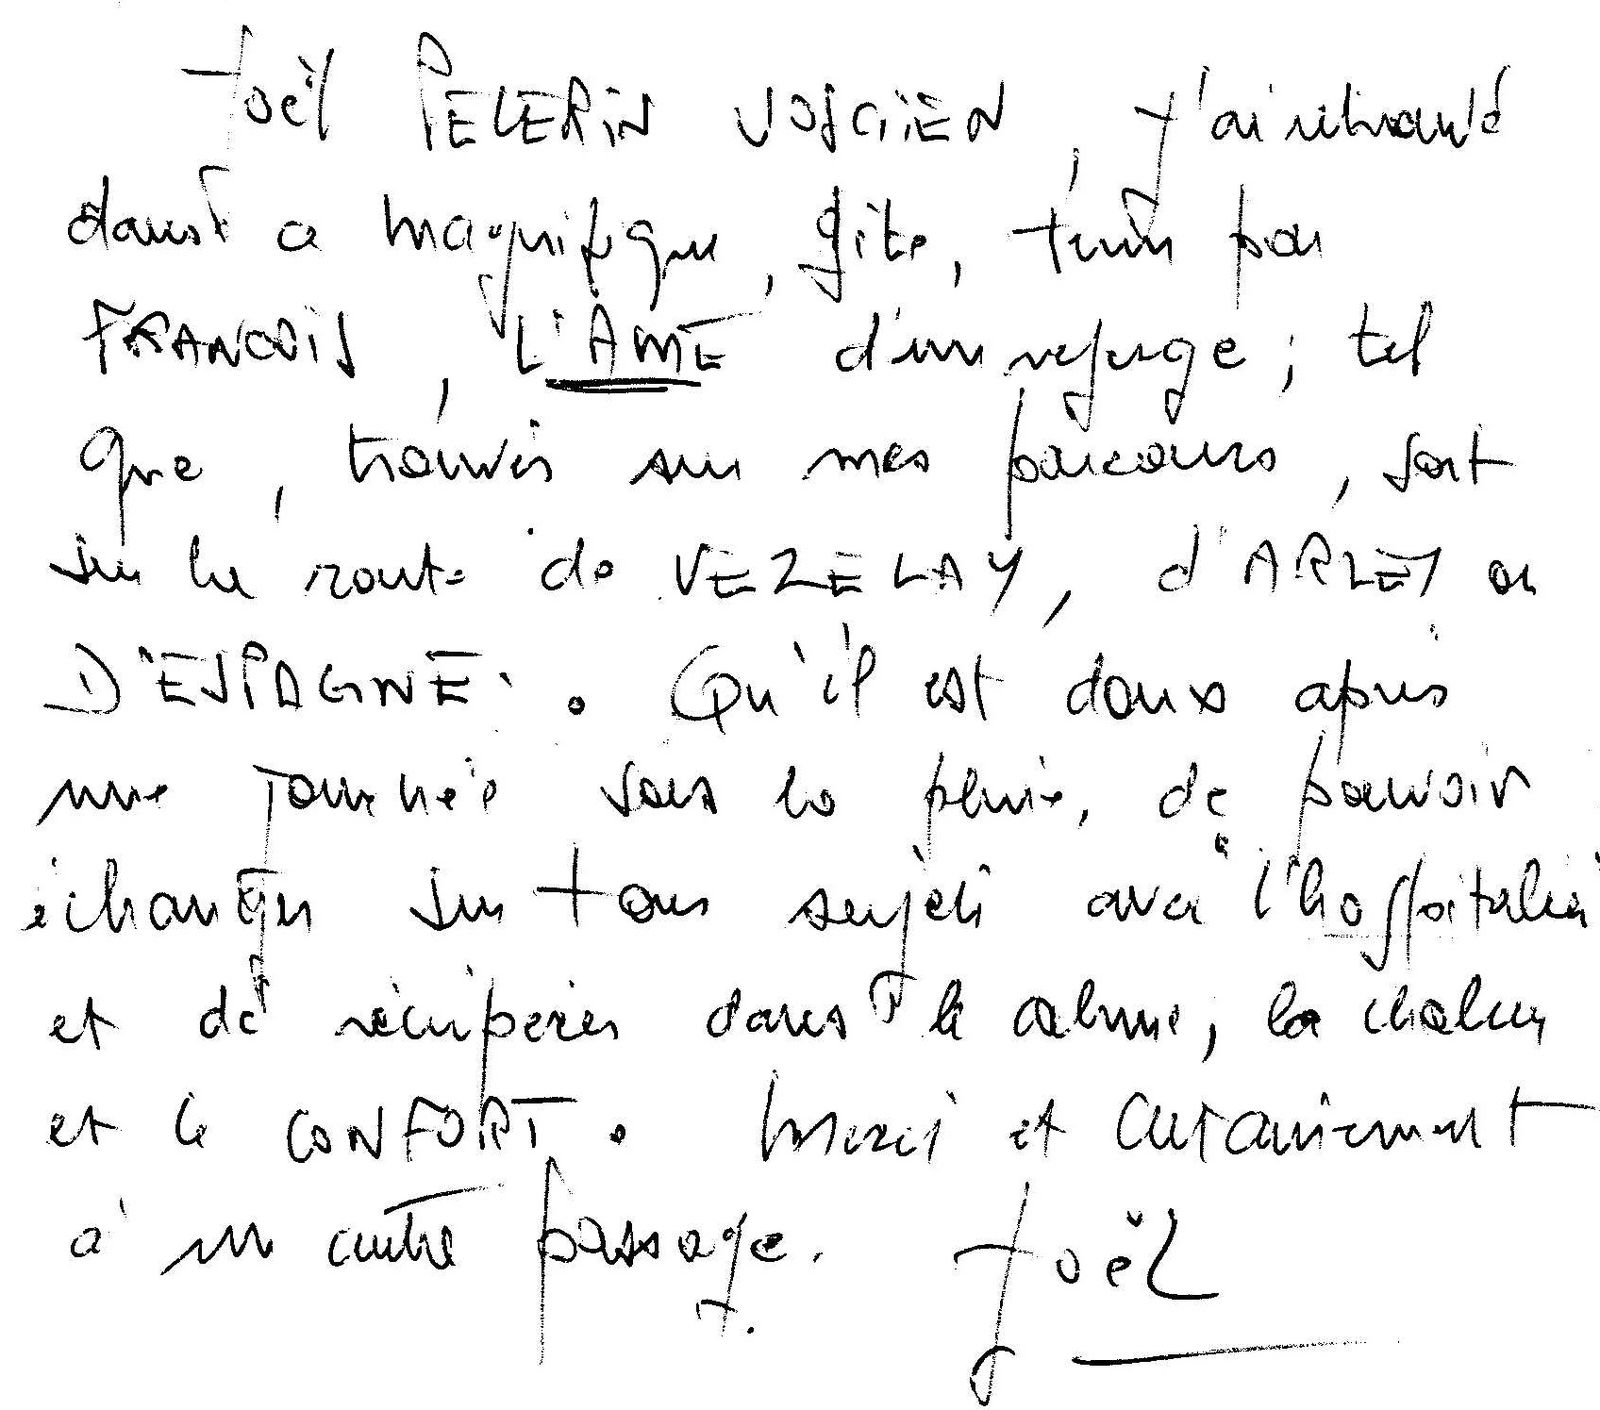 Joël PELERIN VOSGIEN, J'ai retrouvé
dans ce magnifique, gîte, tenu par
FRANCOIS, L'AME d'un refuge; tel
que, trouvés sur mes parcours, soit
sur la route de VEZELAY, d'ARLES ou
D'ESPAGNE. Qu'il est doux après
une journée sous la pluie, de pouvoir
échanger sur tous sujets avec "l'hospitalier"
et de récupérer dans le calme, la chaleur
et le CONFORT. Merci et certainement
à un autre passage. Joël